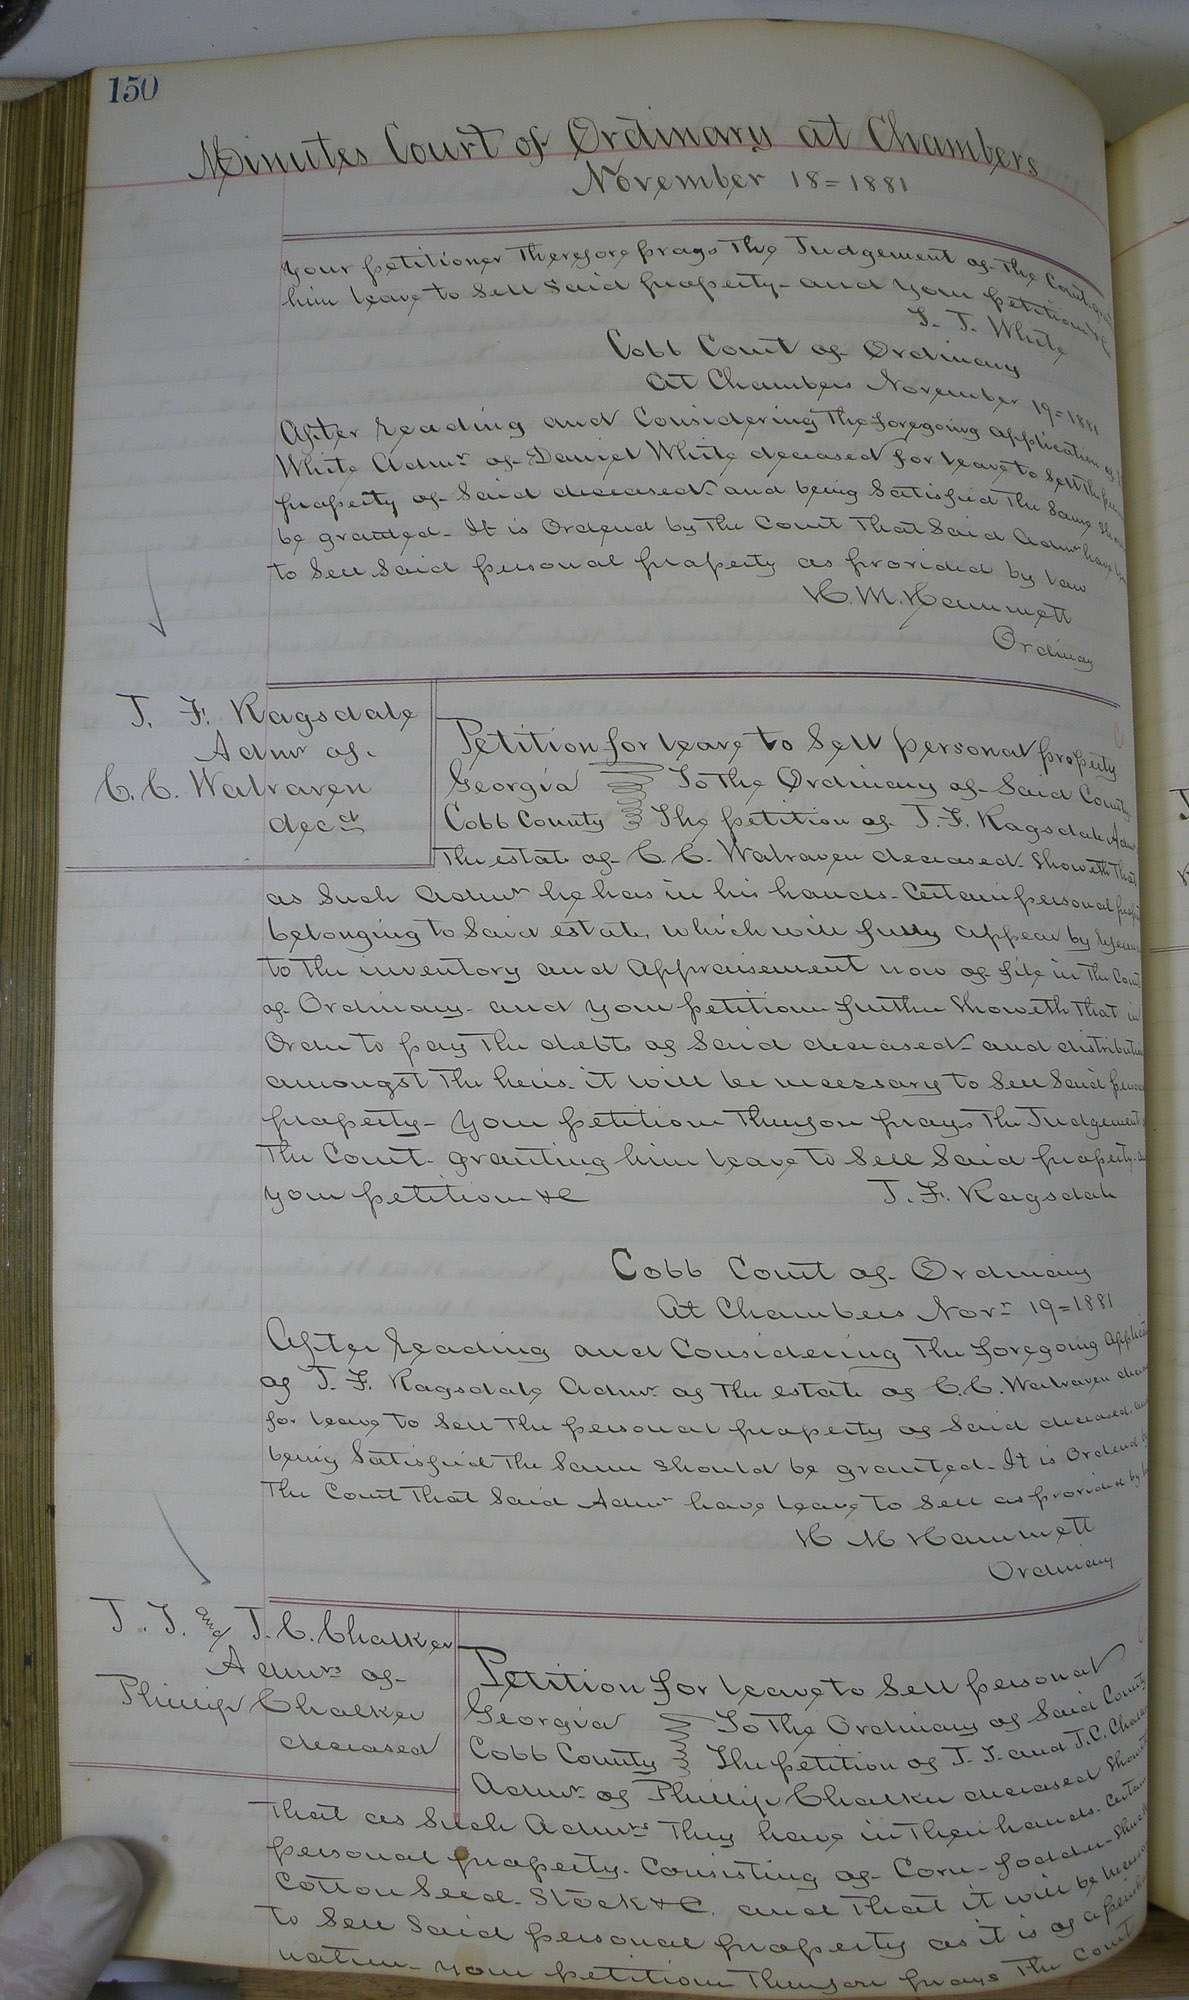 150
Minutes Court of Ordinary at Chambers
November 18=1881
Your petitioner Therefore prays The Judgement of The Court
him leave to Sell Said property- and your petitioner &c
T. White
Cobb Court of Ordinary
At Chambers November 19=1881
After reading and Considering The foregoing application of
White Admr of Daniel White deceased for leave to Sell the
property of Said deceased and being Satisfied The Same
be granted- It is Ordered by The Court That Said Admr have
to Sell Said personal property as provided by law
H. M. Hammett
Ordinary
J. F. Ragsdale
Admr of
C. C. Walraven
decd
Petition for leave to Sell personal property
Georgia To The Ordinary of Said County
Cobb County The petition of J. F. Ragsdale Admr
The estate of C. C. Walraven deceased- Showeth That
as Such Admr he has in his hands- Certain personal
belonging to Said estate, which will fully appear by
to The inventory and Appraisement now of file in The Court
of Ordinary- and your petitioner further Showeth That in
Order to pay The debts of Said deceased- and distribution
amongst The heirs- it will be necessary to Sell Said
property- Your petitioner Therefore prays The Judgement
The Court- granting him leave to Sell Said property-
your petitioner &c J. F. Ragsdale
Cobb Court of Ordinary
At Chambers Novr 19=1881
After reading and Considering The foregoing
of J. F. Ragsdale Admr of The estate of C. C. Walraven
for leave to Sell The personal property of Said deceased,
being Satisfied The Same Should be granted- It is Ordered
The Court That Said Admr have leave to Sell as provided by
H M Hammett
Ordinary
J. T. and J. C. Chalker
Admrs of
Phillip Chalker
deceased
Petition for leave to Sell personal
Georgia To The Ordinary of Said County
Cobb County The petition of J. T. and J. C.
Admrs of Phillip Chalker deceased
That as Such Admrs They have in Their hands- Certain
personal property- Consisting of Corn- fodder-
Cotton Seed- Stock &C. and That it will be
to Sell Said personal property as it is of a
nature- Your petitioners Therefore prays The Court